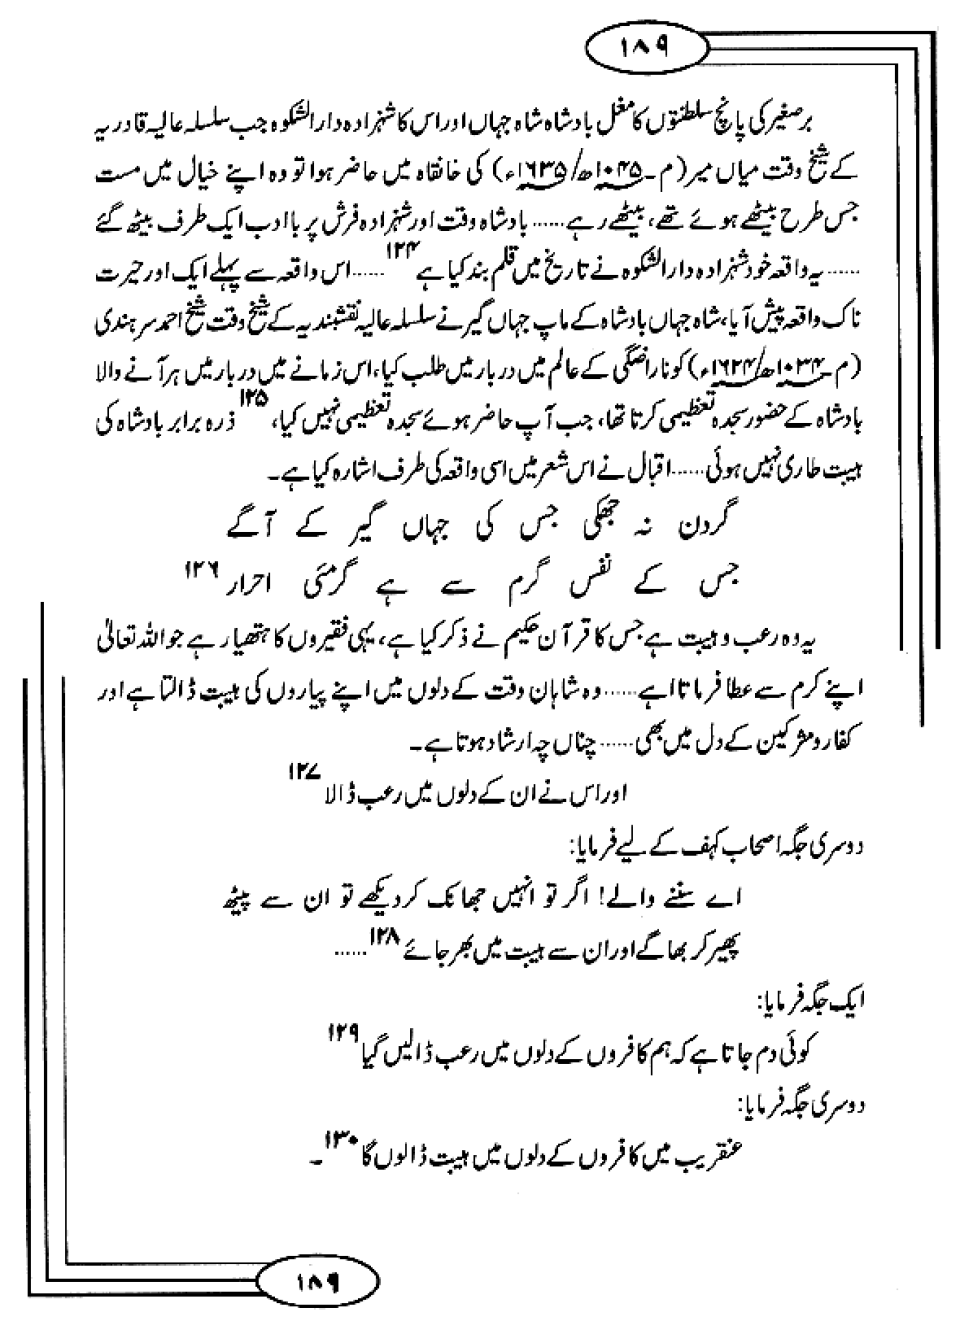 ۱۸۹
برصغیر کی پانچ سلطنتوں کا مغل بادشاہ شاہ جہاں اور اس کا شہزادہ دارالشکوہ جب سلسلہ عالیہ قادریہ
کے شیخ وقت میاں میر (م۔۱۰۴۵ھ/۱۶۳۵ء) کی خانقاہ میں حاضر ہوا تو وہ اپنے خیال میں مست
جس طرح بیٹھے ہوئے تھے، بیٹھے رہے...... بادشاہ وقت اور شہزادہ فرش پر باادب ایک طرف بیٹھ گئے
...... یہ واقعہ خود شہزادہ دارالشکوہ نے تاریخ میں قلم بند کیا ہے ۱۲۴...... اس واقعہ سے پہلے ایک اور حیرت
ناک واقعہ پیش آیا، شاہ جہاں بادشاہ کے ماپ جہاں گیر نے سلسلہ عالیہ نقشبندیہ کے شیخ وقت شیخ احمد سرہندی
(م۔۱۰۳۴ھ/۱۶۲۴ء) کو ناراضگی کے عالم میں دربار میں طلب کیا، اس زمانے میں دربار میں ہر آنے والا
بادشاہ کے حضور سجدہ تعظیمی کرتا تھا، جب آپ حاضر ہوئے سجدہ تعظیمی نہیں کیا، ۱۲۵ ذرہ برابر بادشاہ کی
ہیبت طاری نہیں ہوئی...... اقبال نے اس شعر میں اسی واقعہ کی طرف اشارہ کیا ہے۔
گردن نہ جھکی جس کی جہاں گیر کے آگے
جس کے نفس گرم سے ہے گرمئی احرار ۱۲۶
یہ وہ رعب و ہیبت ہے جس کا قرآن حکیم نے ذکر کیا ہے، یہی فقیروں کا ہتھیار ہے جو اللہ تعالیٰ
اپنے کرم سے عطا فرماتا اہے...... وہ شاہان وقت کے دلوں میں اپنے پیاروں کی ہیبت ڈالتا ہے اور
کفار و مشرکین کے دل میں بھی...... چناں چہ ارشاد ہوتا ہے۔
اور اس نے ان کے دلوں میں رعب ڈالا ۱۲۷
دوسری جگہ اصحاب کہف کے لیے فرمایا:
اے سننے والے! اگر تو انہیں جھانک کر دیکھے تو ان سے پیٹھ
پھیر کر بھاگے اور ان سے ہیبت میں بھر جائے ۱۲۸......
ایک جگہ فرمایا:
کوئی دم جاتا ہے کہ ہم کافروں کے دلوں میں رعب ڈالیں گیا ۱۲۹
دوسری جگہ فرمایا:
عنقریب میں کافروں کے دلوں میں ہیبت ڈالوں گا ۱۳۰۔
۱۸۹